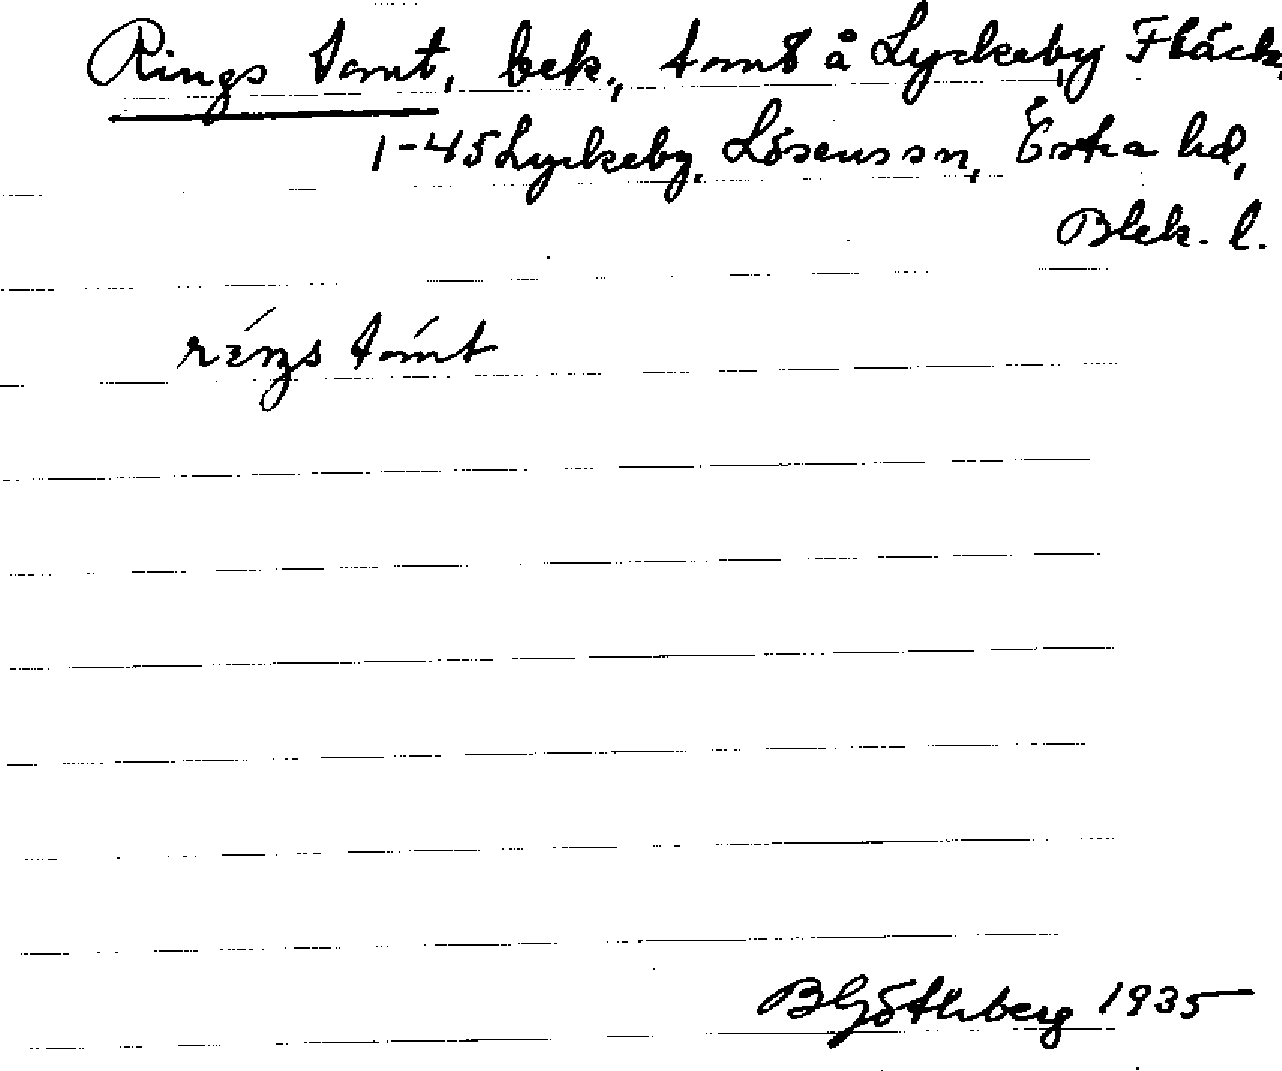 Rings tomt, bek., tomt å Lyckeby Fläck,
1-45 Lyckeby, Lösens sn, Östra hd,
Blek. l.
tomt
B Göthberg 1935